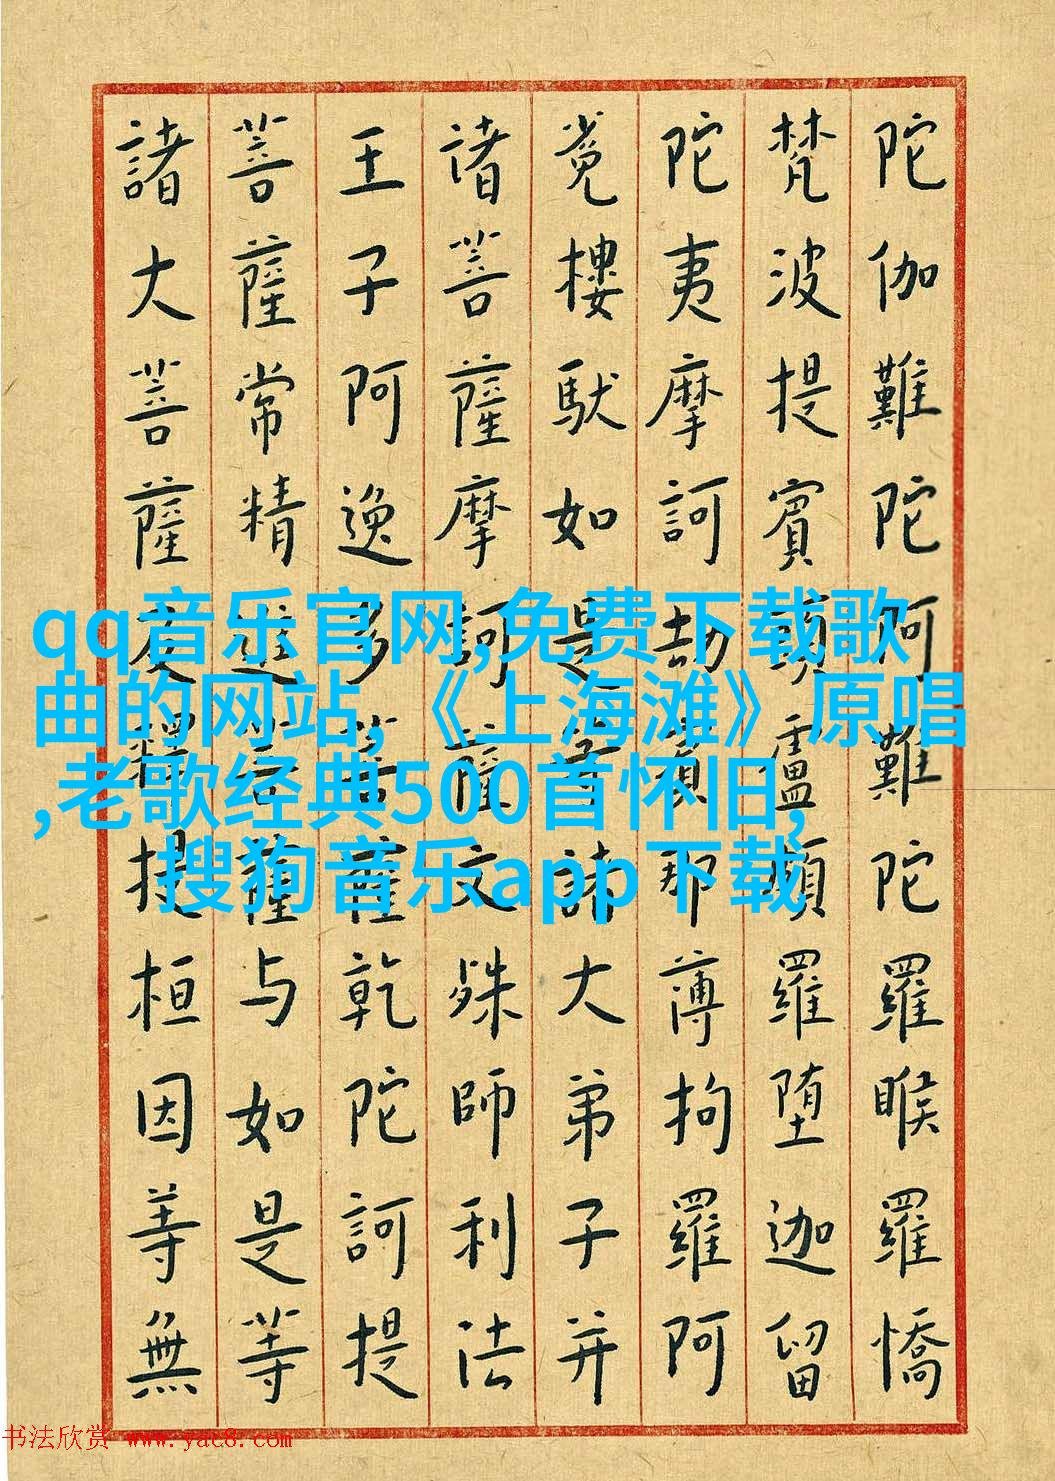 陀伽難陀阿難陀羅睺羅憍
梵波提賓頭盧頗羅堕迦留
陀夷摩訶劫賓那薄拘羅阿
樓馱如是等諸大弟子并
诸菩薩摩訶薩文殊師利法
王子阿逸多菩薩乾陀訶提
菩薩常精進菩薩与如是等
諸大菩薩及釋提桓因等無
qq音乐官网,免费下载歌
曲的网站,《上海滩》原唱
,老歌经典500首怀旧,
搜狗音乐app下载
书法欣赏 www.yac8.com